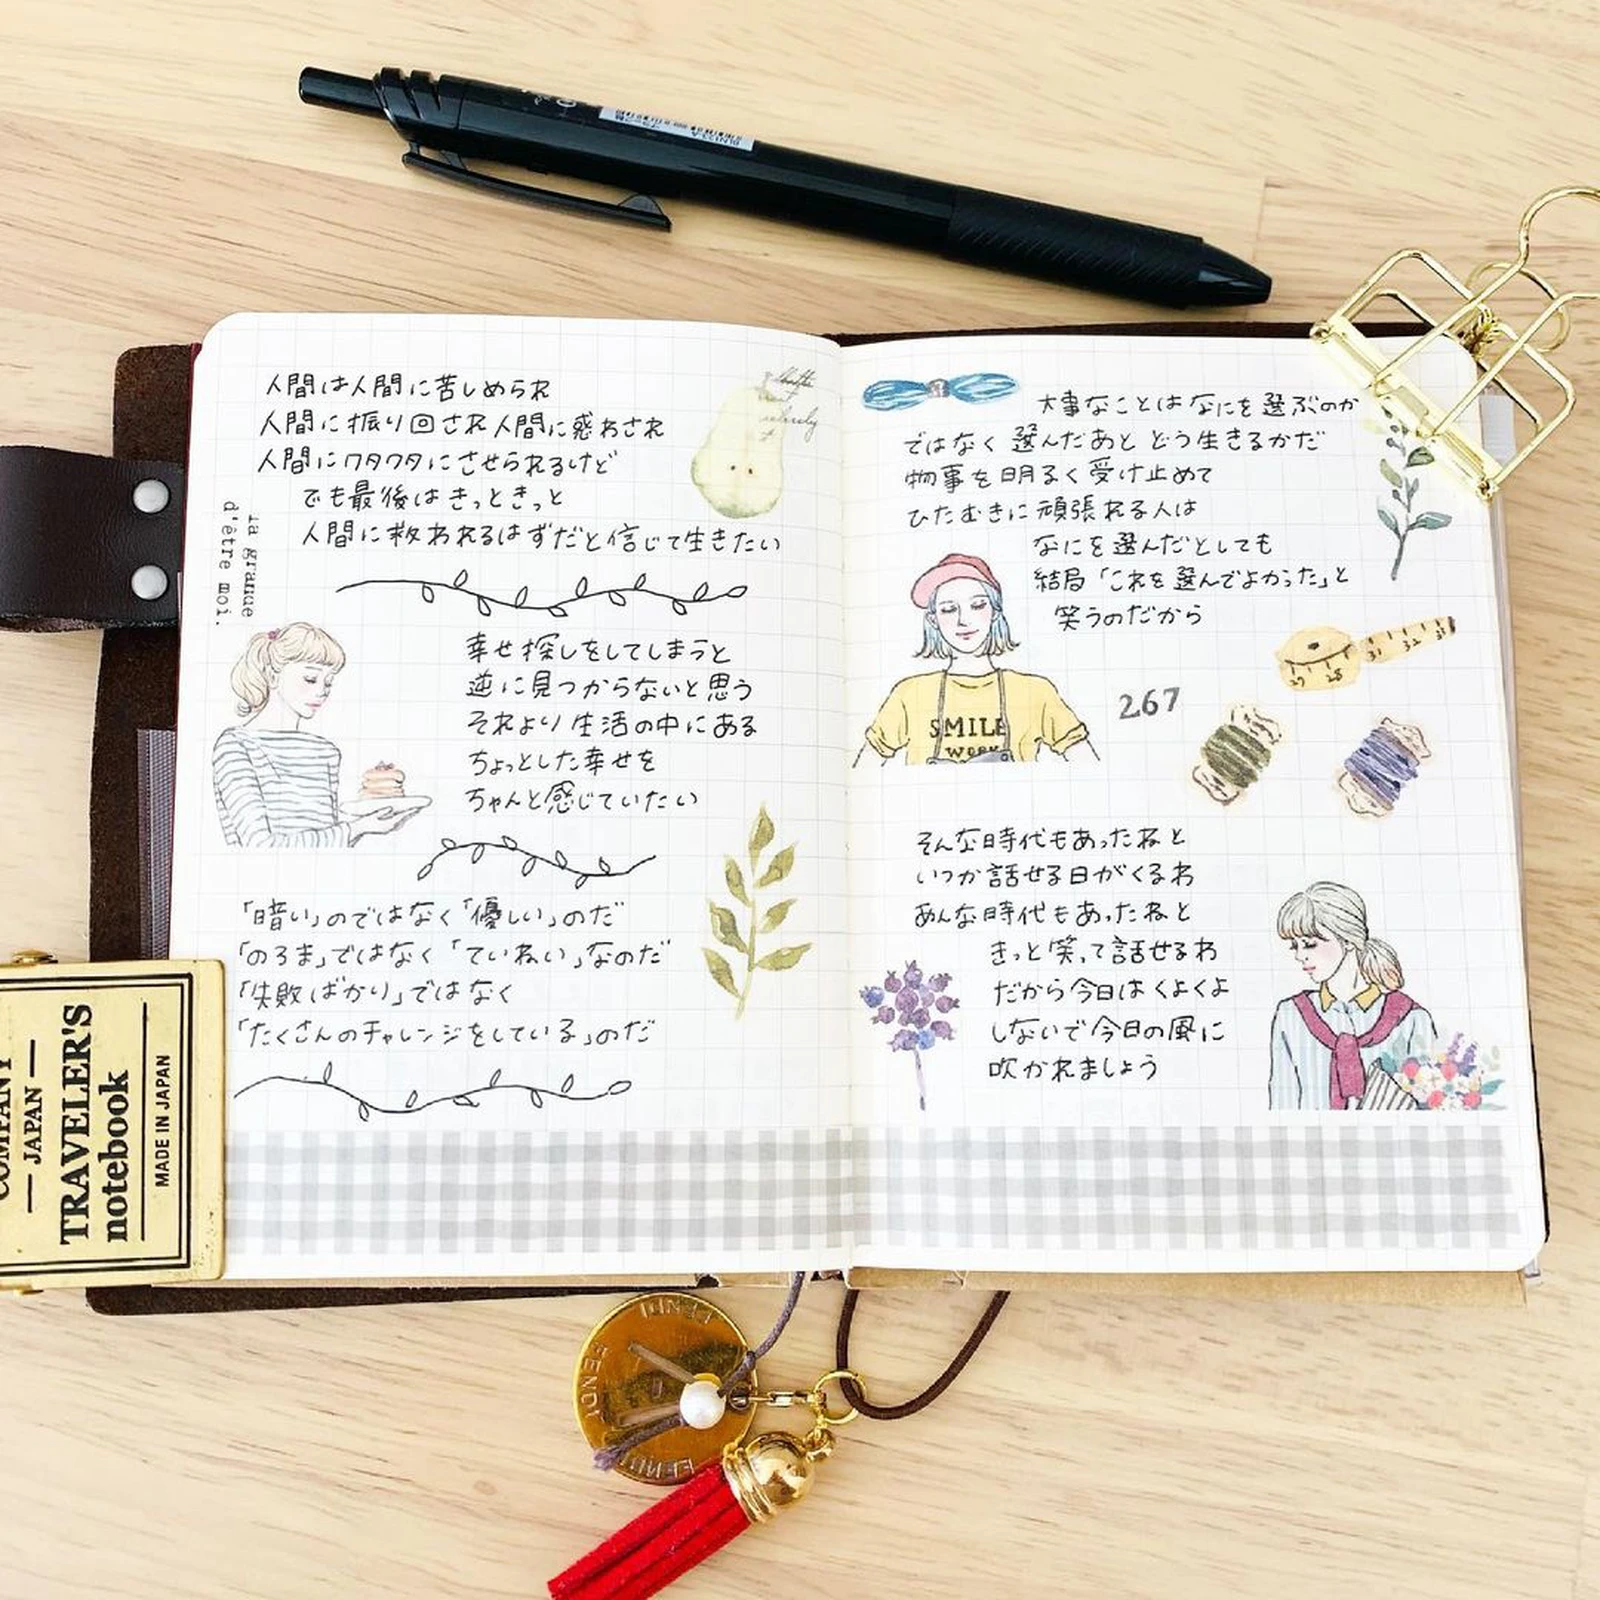 人間は人間に苦しめられ
人間に振り回され人間に惑わされ
人間にワタワタにさせられるけど
でも最後はきっときっと
人間に救われるはずだと信じて生きたい
la grande
d'être moi.
幸せ探しをしてしまうと
逆に見つからないと思う
それより生活の中にある
ちょっとした幸せを
ちゃんと感じていたい
「暗い」のではなく「優しい」のだ
「のろま」ではなく「ていねい」なのだ
「失敗ばかり」ではなく
「たくさんのチャレンジをしている」のだ
大事なことはなにを選ぶのか
ではなく選んだあとどう生きるかだ
物事を明るく受け止めて
ひたむきに頑張れる人は
なにを選んだとしても
結局「これを選んでよかった」と
笑うのだから
SMILE
WORK
267
31 32 33
27 28
そんな時代もあったねと
いつか話せる日がくるわ
あんな時代もあったねと
きっと笑って話せるわ
だから今日はくよくよ
しないで今日の風に
吹かれましょう
COMPANY
JAPAN
TRAVELER'S
notebook
MADE IN JAPAN
FENDI
FENDI
FENDI